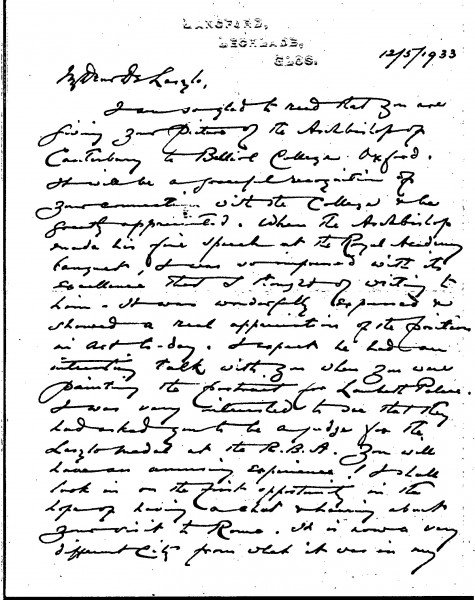 LANGFORD,
LECHLADE,
GLOS.
12/5/1933
My Dear De Laszlo,
I am so glad to read that you are
giving your picture of the Archbishop of
Canterbury to Balliol College Oxford.
It will be a graceful recognition of
your connection with the College & be
greatly appreciated. When the Archbishop
made his fine speech at the Royal Academy
banquet, I was so impressed with its
excellence that I thought of writing to
him. It was wonderfully expressed &
showed a real appreciation of the position
in art to-day. I expect he had an
interesting talk with you when you were
painting the portrait for Lambeth Palace.
I was very interested to see that they
had asked you to be a judge for the
Laszlo medal at the R.B.A. You will
have an amusing experience! I shall
look in on the first opportunity in the
hope of having a chat & hearing about
your visit to Rome. It is now a very
different City from what it was in my